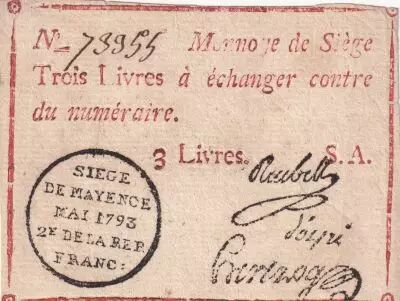 No 73955 Monnoye de Siège
Trois Livres à échanger contre
du numéraire.
3 Livres. S. A.
SIEGE
DE MAYENCE
MAI 1793
2E DE LA REP
FRANC:
Reubell